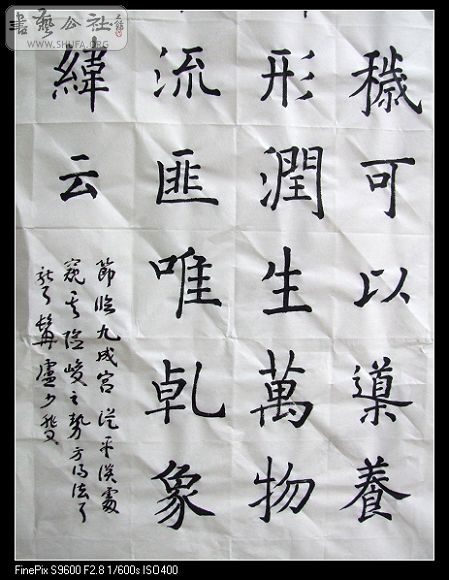 書藝公社
WWW.SHUFA.ORG
穢可以導養
形潤生萬物
流匪唯乹象
緯云
節臨九成宮從平淡處
窺其險峻之勢方得法了
髯盧少
FinePix S9600 F2.8 1/600s ISO400